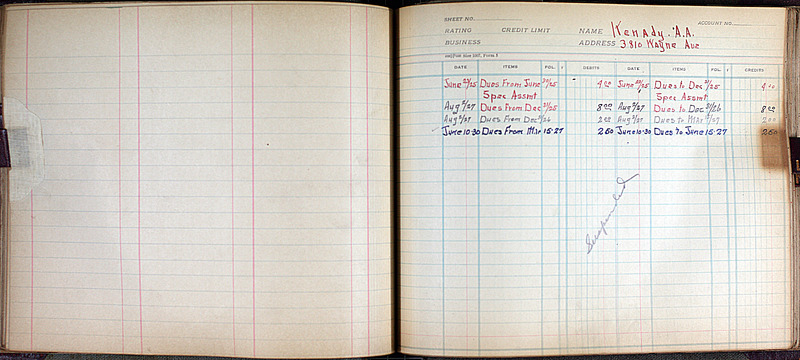 SHEET NO. ACCOUNT NO.
RATING CREDIT LIMIT NAME Kenady. A.A.
BUSINESS ADDRESS 3810 Wayne Ave
DATE ITEMS FOL. DEBITS DATE ITEMS FOL. CREDITS
June /25 Dues From June /25 4.00 June /25 Dues to Dec 31/25 4.00
Spec. Assmt. Spec. Assmt
Aug /27 Dues From Dec 31/25 8.00 Aug /27 Dues to Dec 31/26 8.00
Aug /27 Dues From Dec /26 2.00 Aug /27 Dues to Mar /27 2.00
June 10-30 Dues From Mar 15-27 2.50 June 10-30 Dues To June 15-27 2.50
Suspended